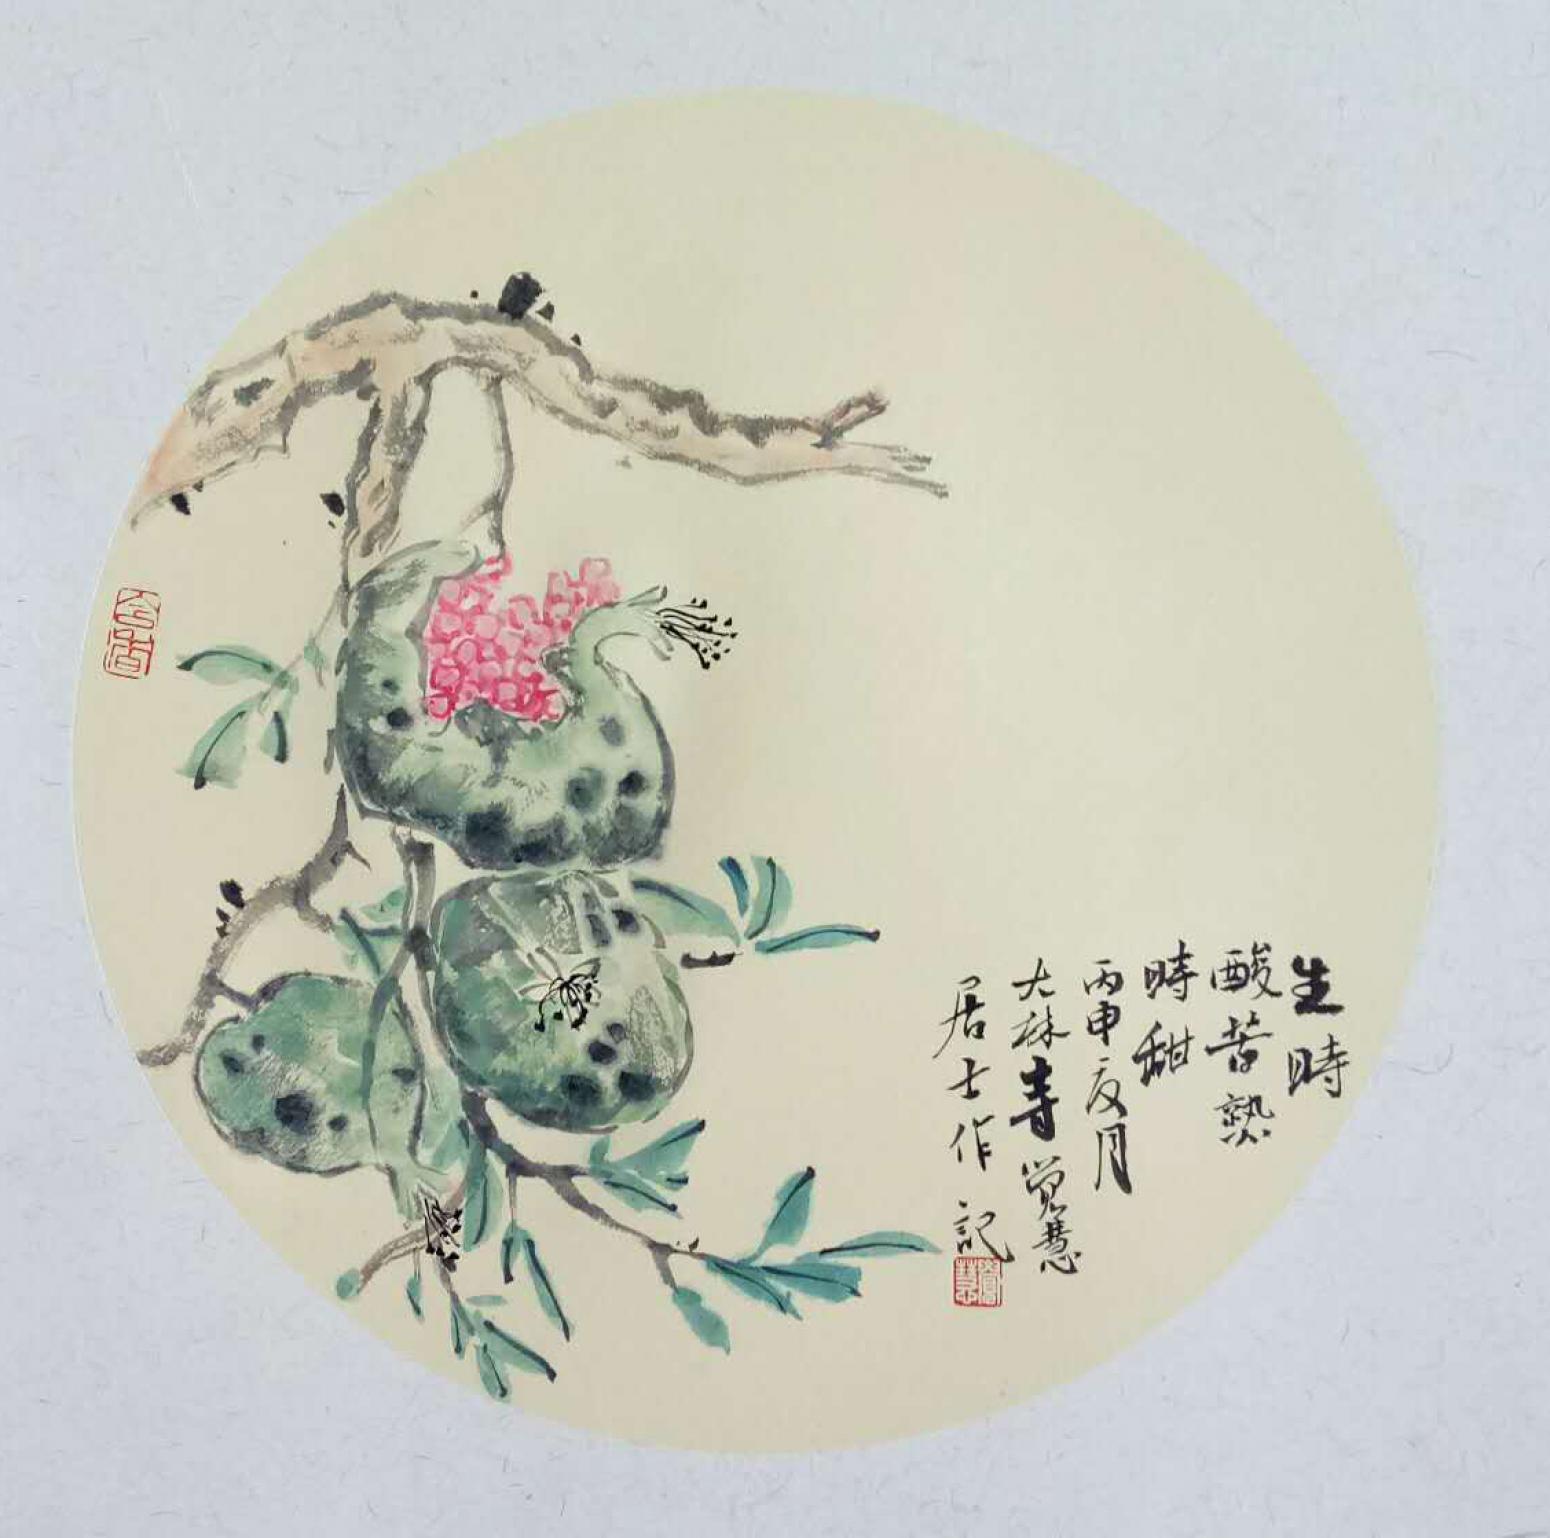 生時
酸苦熟
時甜
丙申夏月
大林寺觉慧
居士作記